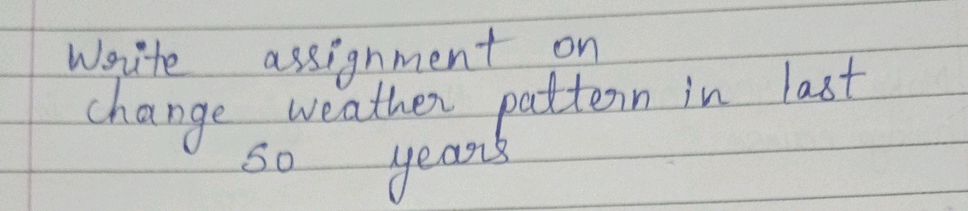 Write assignment on
change weather pattern in last
50 years